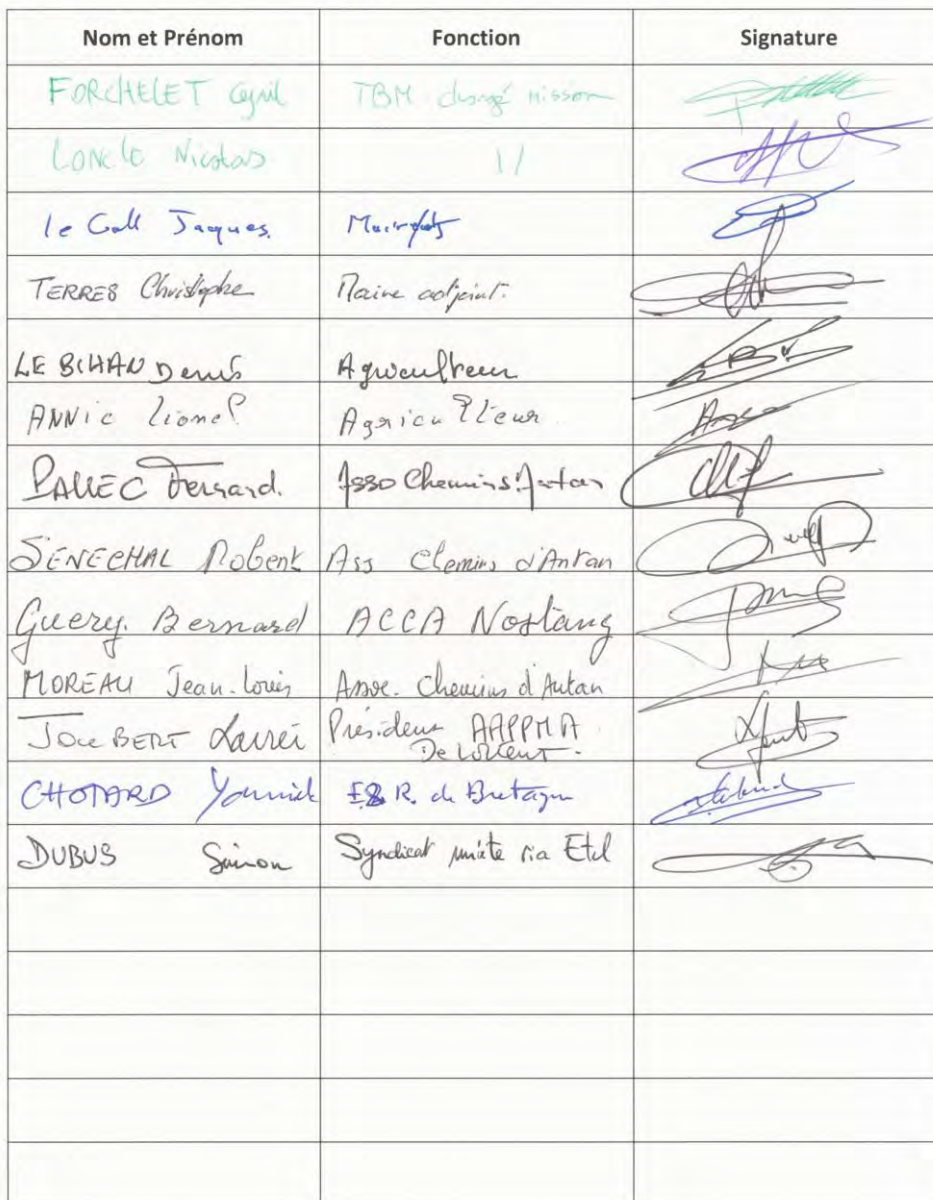 Nom et Prénom Fonction Signature
FORCHELET Cyril TBM chargé mission
LONCLE Nicolas //
le Gall Jaques.
TERRES Christophe Maire adjoint.
LE BIHAN Denis Agriculteur
ANNIC Lionel Agriculteur
PALLEC Fernand. Asso Chemins Antan
SENECHAL Robert Ass Chemins d'Antan
Guery. Bernard ACCA Nostang
MOREAU Jean-Louis Assoc. Chemins d'Antan
JOUBERT Président AAPPMA
De Lorient.
CHOTARD Yannick R. de Bretagne
DUBUS Simon Syndicat mixte ria Etel